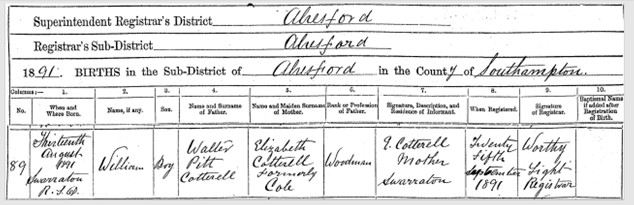 Superintendent Registrar's District Alresford
Registrar's Sub-District Alresford
1891. BIRTHS in the Sub-District of Alresford in the County of Southampton.
Columns:— 1. 2. 3. 4. 5. 6. 7. 8. 9. 10.
No. When and Where Born. Name, if any. Sex. Name and Surname of Father. Name and Maiden Surname of Mother. Rank or Profession of Father. Signature, Description, and Residence of Informant. When Registered. Signature of Registrar. Baptismal Name if added after Registration of Birth.
89
Thirteenth
August
1891
Swarraton
R.S.D.
William
Boy
Walter
Pitt
Cotterell
Elizabeth
Cotterell
formerly
Cole
Woodman
E. Cotterell
Mother
Swarraton
Twenty
Fifth
September
1891
Worthy
Light
Registrar